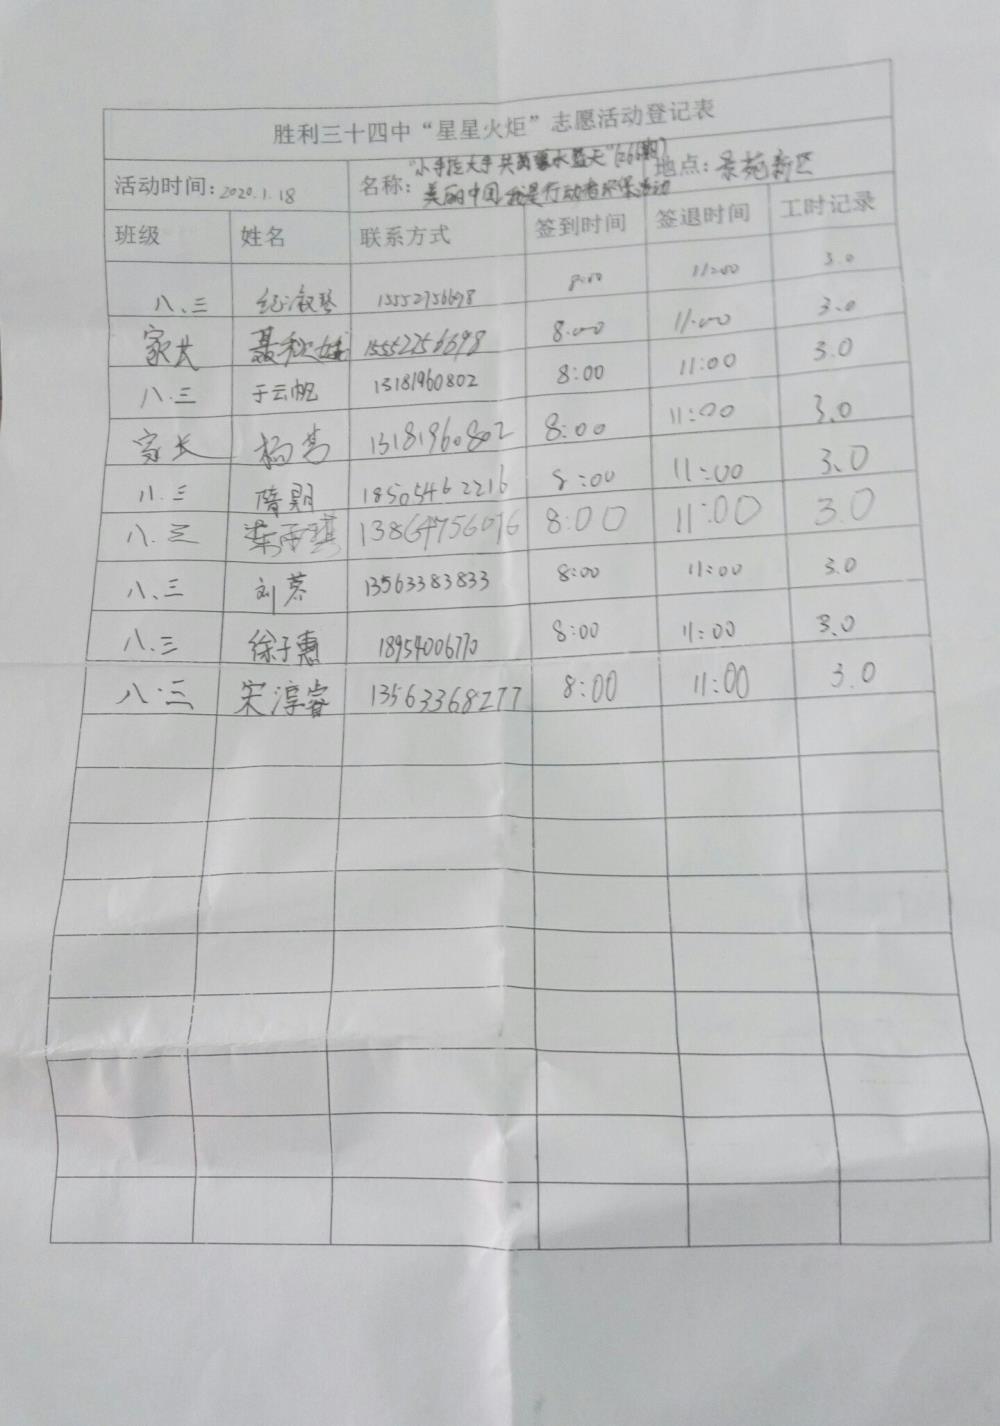 胜利三十四中“星星火炬”志愿活动登记表
活动时间：2020.1.18 名称：“小手拉大手 共 水蓝天” 美丽中国 我是行动者环保活动 地点：景苑新区
班级 姓名 联系方式 签到时间 签退时间 工时记录
八、三 纪淑琴 15552756698 8:00 11:00 3.0
家长 聂秋 15552756698 8:00 11:00 3.0
八.三 于云帆 13181960802 8:00 11:00 3.0
家长 杨 13181960802 8:00 11:00 3.0
八.三 隋 18505462216 8:00 11:00 3.0
八.三 雨琪 13864756076 8:00 11:00 3.0
八、三 刘蓉 13563383833 8:00 11:00 3.0
八.三 徐子惠 18954006770 8:00 11:00 3.0
八.三 宋淳睿 13563368277 8:00 11:00 3.0